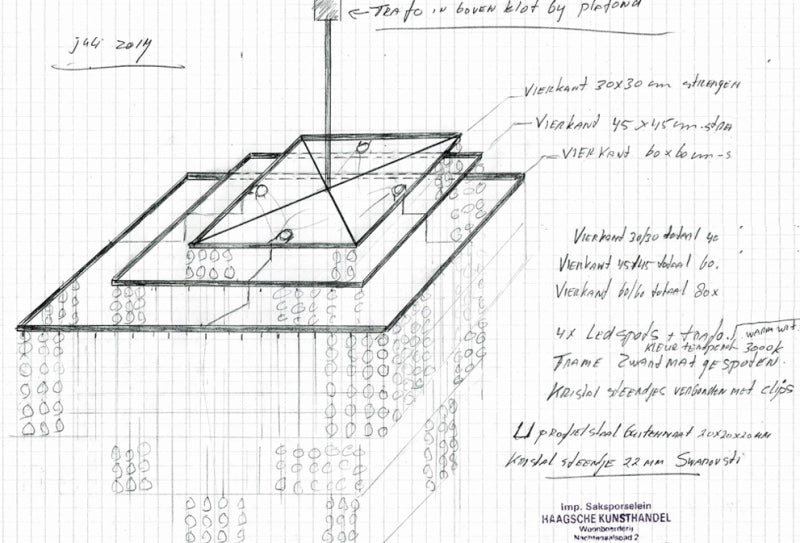 TRAFO IN BOVEN KLOT BY PLAFOND
juli 2014
VIERKANT 30X30 cm STRENGEN
VIERKAND 45X45 cm-STRA
VIERKANT 60x60cm-S
VIERKAND 30/30 totaal 40
VIERKANT 45X45 totaal 60.
VIERKAND 60/60 totaal 80x
4X Ledspots + trafo. WARM WIT.
KLEUR 3000K
FRAME ZWART MAT GESPOTEN.
KRISTAL STEENTJES VERBONDEN MET CLIPS
U profielstaal Buitenmaat 20x20x20MM
KRISTAL STEENTJE 22 MM SWAROVSKI
Imp. Saksporselein
HAAGSCHE KUNSTHANDEL
Woonboerderij